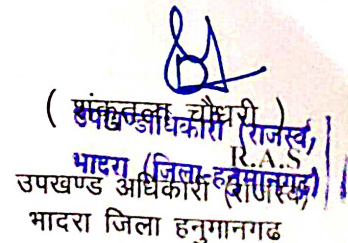 ( शकुन्तला चौधरी )
उपखण्ड अधिकारी (राजस्व)
R.A.S
भादरा (जिला-हनुमानगढ़)
उपखण्ड अधिकारी (राजस्व)
भादरा जिला हनुगानगढ